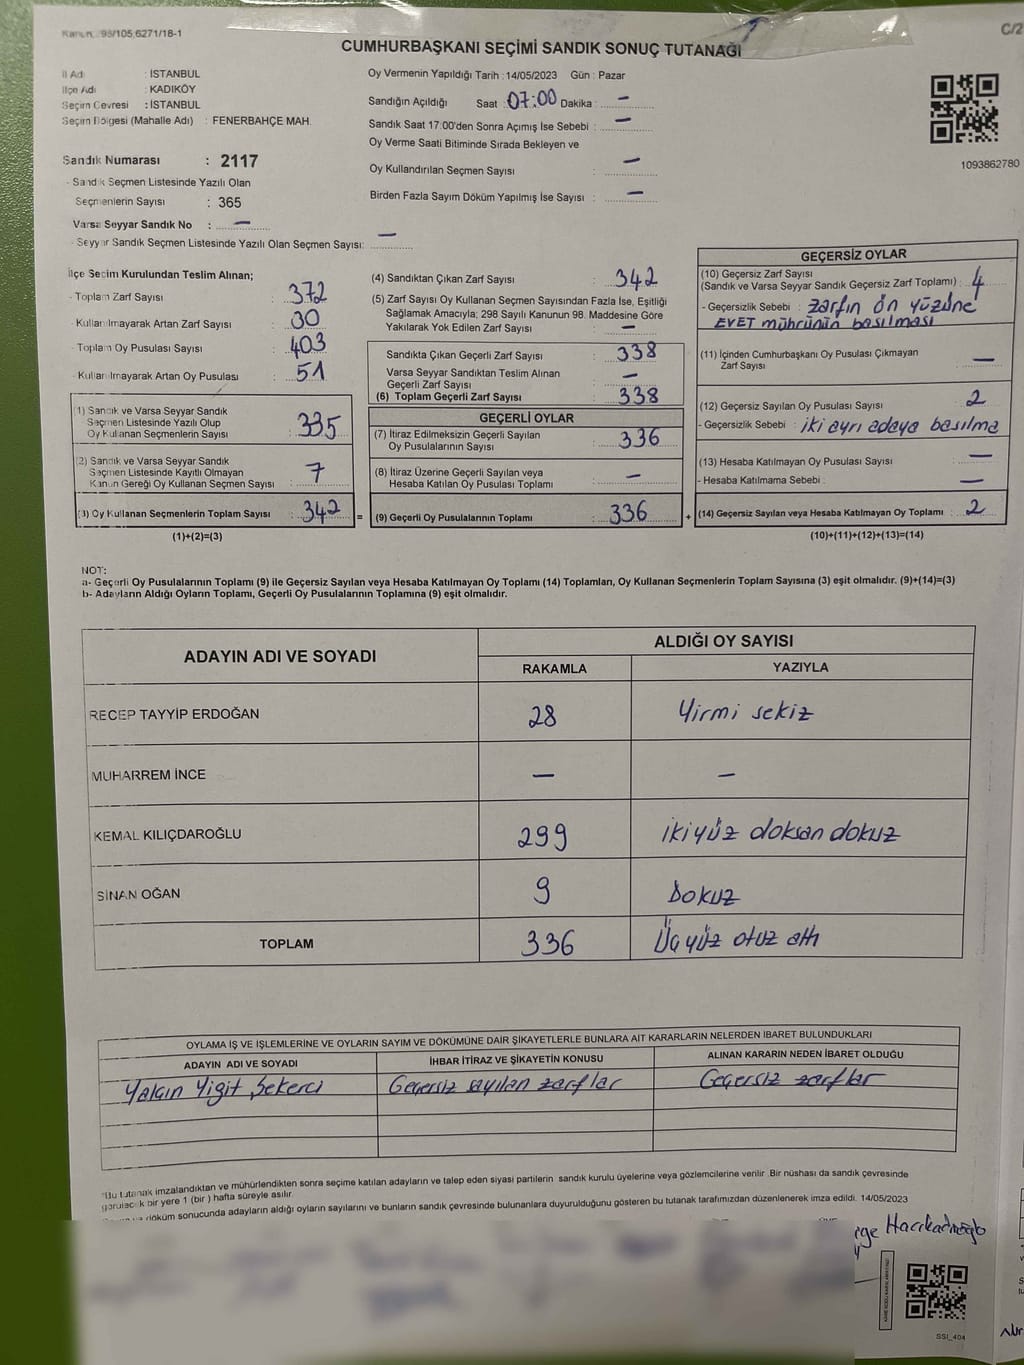 Kanun: 98/105,6271/18-1
C/2
CUMHURBAŞKANI SEÇİMİ SANDIK SONUÇ TUTANAĞI
İl Adı : İSTANBUL
İlçe Adı : KADIKÖY
Seçim Çevresi : İSTANBUL
Seçim Bölgesi (Mahalle Adı) : FENERBAHÇE MAH.
Oy Vermenin Yapıldığı Tarih : 14/05/2023 Gün : Pazar
Sandığın Açıldığı Saat : 07:00 Dakika : —
Sandık Saat 17:00'den Sonra Açımış İse Sebebi : —
Oy Verme Saati Bitiminde Sırada Bekleyen ve
Oy Kullandırılan Seçmen Sayısı : —
Birden Fazla Sayım Döküm Yapılmış İse Sayısı : —
1093862780
Sandık Numarası : 2117
- Sandık Seçmen Listesinde Yazılı Olan
Seçmenlerin Sayısı : 365
Varsa Seyyar Sandık No : —
- Seyyar Sandık Seçmen Listesinde Yazılı Olan Seçmen Sayısı: —
İlçe Seçim Kurulundan Teslim Alınan;
- Toplam Zarf Sayısı : 372
- Kullanılmayarak Artan Zarf Sayısı : 30
- Toplam Oy Pusulası Sayısı : 403
- Kullanılmayarak Artan Oy Pusulası : 51
(1) Sandık ve Varsa Seyyar Sandık
Seçmen Listesinde Yazılı Olup
Oy Kullanan Seçmenlerin Sayısı : 335
(2) Sandık ve Varsa Seyyar Sandık
Seçmen Listesinde Kayıtlı Olmayan
Kanun Gereği Oy Kullanan Seçmen Sayısı : 7
(3) Oy Kullanan Seçmenlerin Toplam Sayısı : 342 =
(1)+(2)=(3)
(4) Sandıktan Çıkan Zarf Sayısı : 342
(5) Zarf Sayısı Oy Kullanan Seçmen Sayısından Fazla İse, Eşitliği
Sağlamak Amacıyla; 298 Sayılı Kanunun 98. Maddesine Göre
Yakılarak Yok Edilen Zarf Sayısı : —
Sandıkta Çıkan Geçerli Zarf Sayısı : 338
Varsa Seyyar Sandıktan Teslim Alınan
Geçerli Zarf Sayısı : —
(6) Toplam Geçerli Zarf Sayısı : 338
GEÇERLİ OYLAR
(7) İtiraz Edilmeksizin Geçerli Sayılan
Oy Pusulalarının Sayısı : 336
(8) İtiraz Üzerine Geçerli Sayılan veya
Hesaba Katılan Oy Pusulası Toplamı : —
(9) Geçerli Oy Pusulalarının Toplamı : 336 +
GEÇERSİZ OYLAR
(10) Geçersiz Zarf Sayısı
(Sandık ve Varsa Seyyar Sandık Geçersiz Zarf Toplamı) : 4
- Geçersizlik Sebebi : zarfın ön yüzüne
EVET mührünün basılması
(11) İçinden Cumhurbaşkanı Oy Pusulası Çıkmayan
Zarf Sayısı —
(12) Geçersiz Sayılan Oy Pusulası Sayısı : 2
- Geçersizlik Sebebi : iki ayrı adaya basılma
(13) Hesaba Katılmayan Oy Pusulası Sayısı : —
- Hesaba Katılmama Sebebi : —
(14) Geçersiz Sayılan veya Hesaba Katılmayan Oy Toplamı : 2
(10)+(11)+(12)+(13)=(14)
NOT:
a- Geçerli Oy Pusulalarının Toplamı (9) ile Geçersiz Sayılan veya Hesaba Katılmayan Oy Toplamı (14) Toplamları, Oy Kullanan Seçmenlerin Toplam Sayısına (3) eşit olmalıdır. (9)+(14)=(3)
b- Adayların Aldığı Oyların Toplamı, Geçerli Oy Pusulalarının Toplamına (9) eşit olmalıdır.
ADAYIN ADI VE SOYADI
ALDIĞI OY SAYISI
RAKAMLA YAZIYLA
RECEP TAYYİP ERDOĞAN 28 Yirmi sekiz
MUHARREM İNCE — —
KEMAL KILIÇDAROĞLU 299 ikiyüz doksan dokuz
SİNAN OĞAN 9 Dokuz
TOPLAM 336 Üçyüz otuz altı
OYLAMA İŞ VE İŞLEMLERİNE VE OYLARIN SAYIM VE DÖKÜMÜNE DAİR ŞİKAYETLERLE BUNLARA AİT KARARLARIN NELERDEN İBARET BULUNDUKLARI
ADAYIN ADI VE SOYADI İHBAR İTİRAZ VE ŞİKAYETİN KONUSU ALINAN KARARIN NEDEN İBARET OLDUĞU
Yalçın Yiğit Şekerci Geçersiz sayılan zarflar Geçersiz zarflar
"Bu tutanak imzalandıktan ve mühürlendikten sonra seçime katılan adayların ve talep eden siyasi partilerin sandık kurulu üyelerine veya gözlemcilerine verilir .Bir nüshası da sandık çevresinde
görülecek bir yere 1 (bir ) hafta süreyle asılır.
döküm sonucunda adayların aldığı oyların sayılarını ve bunların sandık çevresinde bulunanlara duyurulduğunu gösteren bu tutanak tarafımızdan düzenlenerek imza edildi. 14/05/2023
Hacıkadıroğlu
SSI_404